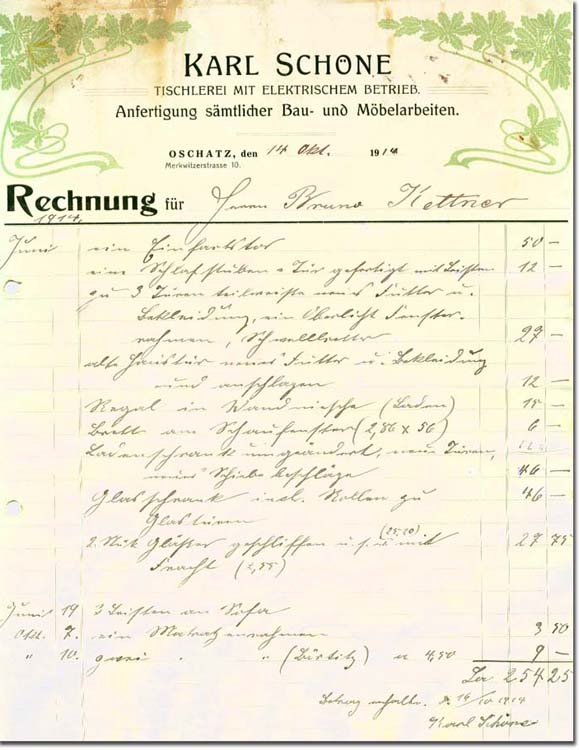 KARL SCHÖNE
TISCHLEREI MIT ELEKTRISCHEM BETRIEB.
Anfertigung sämtlicher Bau- und Möbelarbeiten.
OSCHATZ, den 14 Okt. 1914
Merkwitzerstrasse 10.
Rechnung für Herrn Bruno Kettner
1914.
Juni ein Einfahrtstor 50 —
eine Schlafstuben-Tür gefertigt mit Leisten 12 —
zu 3 Türen teilweiße neues Futter u.
Bekleidung, ein Oberlicht Fenster-
rahmen, Schwellbretter 27 —
alte Haustür neues Futter u. Bekleidung
und anschlagen 12 —
Regal in Wandniesche (Laden) 15 —
Brett am Schaufenster (2,86 x 56) 6 —
Ladenschrank umgeändert, neue Türen,
neues Schiebebeschläge 46 —
Glasschrank incl. Rollen zu 46 —
Glastüren
2 Stük Gläßer geschliffen u. s. w mit (25,20) 27 75
Fracht (2,55)
Juni 19 3 Leisten an Sofa
Okt. 7. ein Matratzenrahmen 3 50
" 10. zwei " " (Börtitz) a 4,50 9 —
Sa 254 25
Betrag erhalten. d. 14/10 1914
Karl Schöne